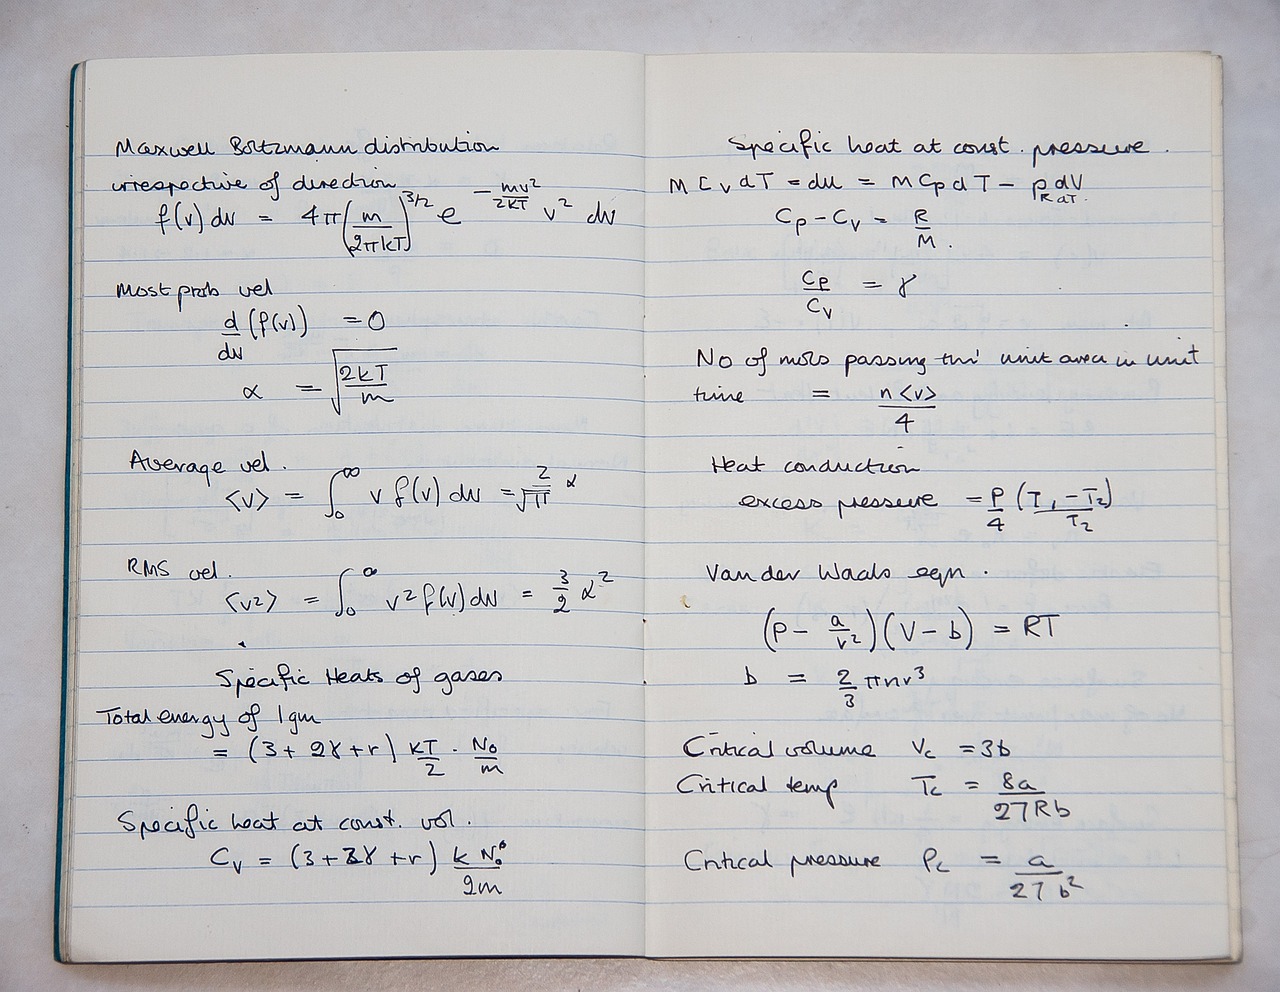 Maxwell Boltzmann distribution
irrespective of direction
f(v) dv = 4π (m/2πkT)^3/2 e^(-mv²/2kT) v² dv
Most prob vel
d/dv (f(v)) = 0
α = √(2kT/m)
Average vel.
<v> = ∫₀^∞ v f(v) dv = 2/√π α
RMS vel.
<v²> = ∫₀^∞ v² f(v) dv = 3/2 α²
Specific Heats of gases
Total energy of 1gm
= (3 + 2γ + r) kT/2 . N₀/m
Specific heat at const. vol.
Cv = (3 + 2γ + r) k N₀/2m
Specific heat at const. pressure.
M Cv dT = du = M Cp dT - p dV
R dT.
Cp - Cv = R/M.
Cp/Cv = γ
No of mols passing thru' unit area in unit
time = n<v>/4
Heat conduction
excess pressure = P/4 (T₁ - T₂)/T₂
Van der Waals eqn.
(P - a/v²)(V - b) = RT
b = 2/3 πnr³
Critical volume Vc = 3b
Critical temp Tc = 8a/27Rb
Critical pressure Pc = a/27b²